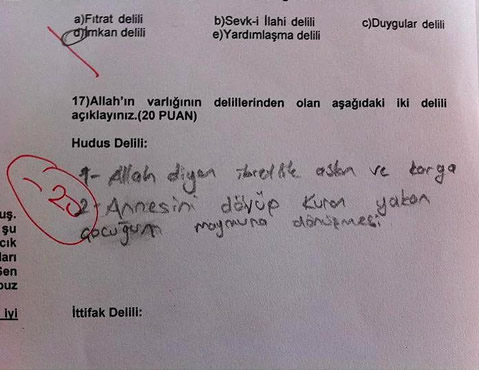 a)Fıtrat delili b)Sevk-i İlahi delili c)Duygular delili
d)İmkan delili e)Yardımlaşma delili
17)Allah'ın varlığının delillerinden olan aşağıdaki iki delili
açıklayınız.(20 PUAN)
Hudus Delili:
1- Allah diyen ibretlik aslan ve karga
2- Annesini dövüp Kuran yakan
çocuğun maymuna dönüşmesi
-20
uş.
şu
cık
ları
Sen
buz
iyi
İttifak Delili: